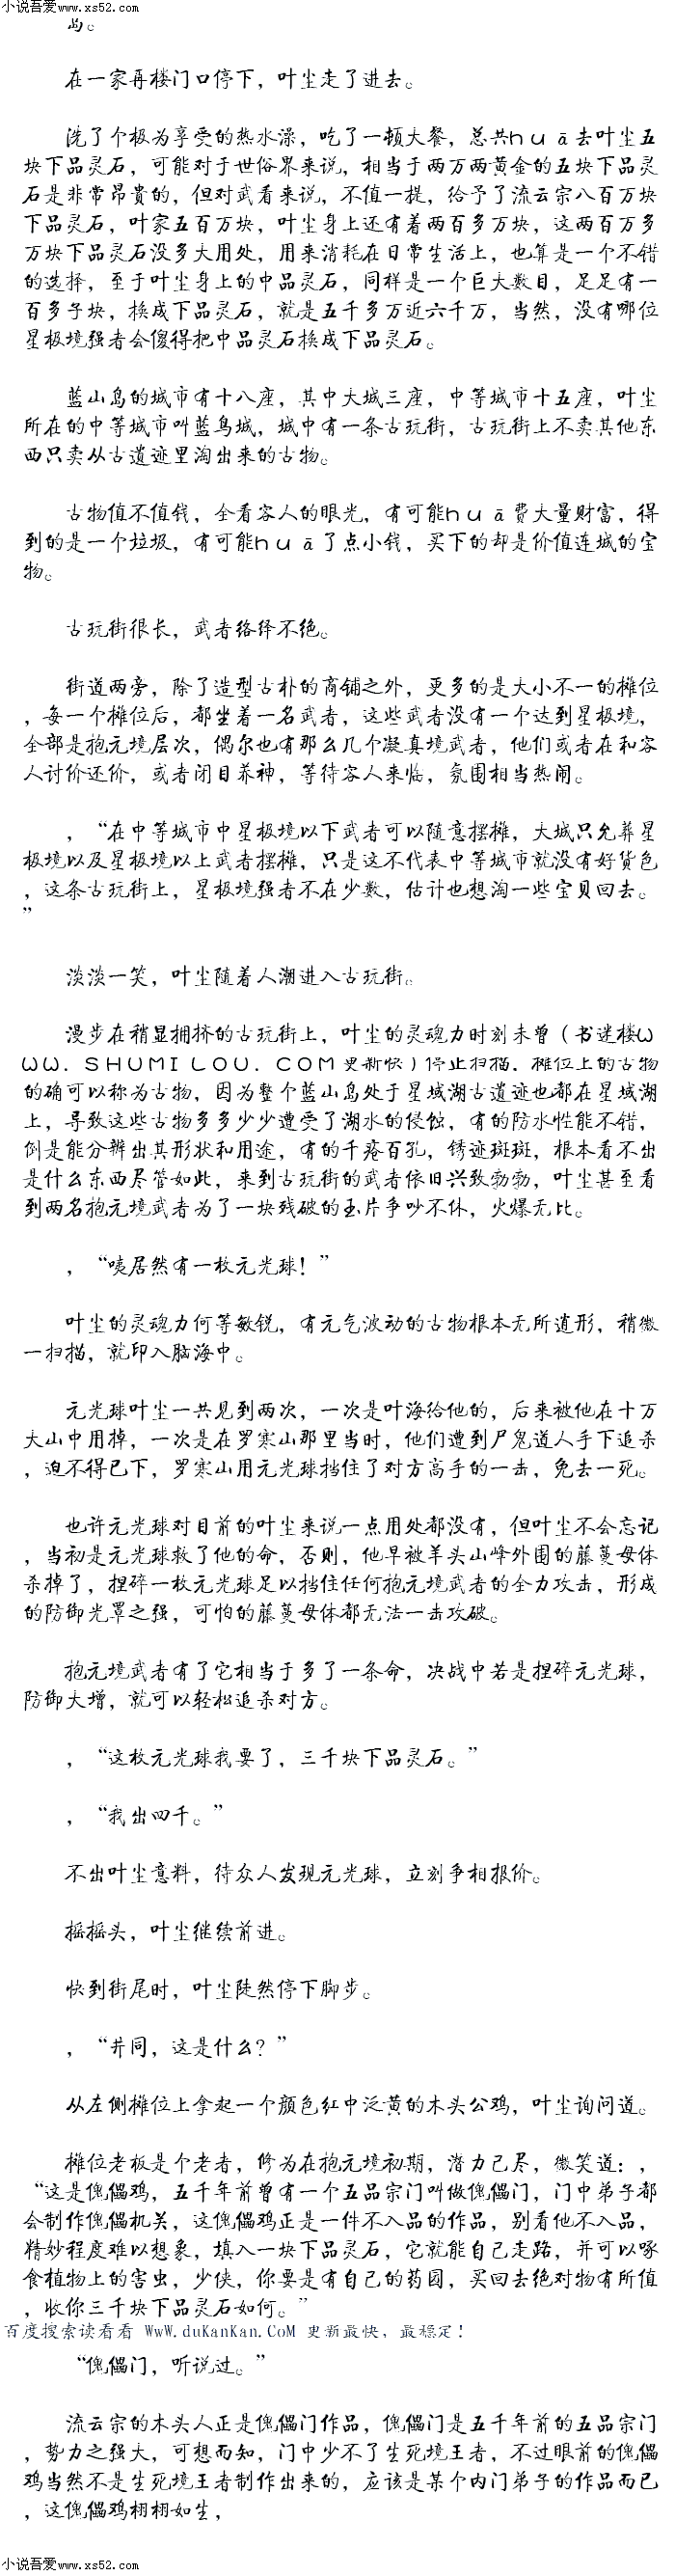 小说吾爱www.xs52.com
岛。
在一家再楼门口停下，叶尘走了进去。
洗了个极为享受的热水澡，吃了一顿大餐，总共huā去叶尘五
块下品灵石，可能对于世俗界来说，相当于两万两黄金的五块下品灵
石是非常昂贵的，但对武看来说，不值一提，给予了流云宗八百万块
下品灵石，叶家五百万块，叶尘身上还有着两百多万块，这两百万多
万块下品灵石没多大用处，用来消耗在日常生活上，也算是一个不错
的选择，至于叶尘身上的中品灵石，同样是一个巨大数目，足足有一
百多子块，换成下品灵石，就是五千多万近六千万，当然，没有哪位
星极境强者会傻得把中品灵石换成下品灵石。
蓝山岛的城市有十八座，其中大城三座，中等城市十五座，叶尘
所在的中等城市叫蓝鸟城，城中有一条古玩街，古玩街上不卖其他东
西只卖从古遗迹里淘出来的古物。
古物值不值钱，全看客人的眼光，有可能huā费大量财富，得
到的是一个垃圾，有可能huā了点小钱，买下的却是价值连城的宝
物。
古玩街很长，武者络绎不绝。
街道两旁，除了造型古朴的商铺之外，更多的是大小不一的摊位
，每一个摊位后，都坐着一名武者，这些武者没有一个达到星极境，
全部是抱元境层次，偶尔也有那么几个凝真境武者，他们或者在和客
人讨价还价，或者闭目养神，等待客人来临，氛围相当热闹。
，“在中等城市中星极境以下武者可以随意摆摊，大城只允葬星
极境以及星极境以上武者摆摊，只是这不代表中等城市就没有好货色
，这条古玩街上，星极境强者不在少数，估计也想淘一些宝贝回去。
”
淡淡一笑，叶尘随着人潮进入古玩街。
漫步在稍显拥挤的古玩街上，叶尘的灵魂力时刻未曾（书迷楼W
WW．SHUMILOU．COM更新快）停止扫描，摊位上的古物
的确可以称为古物，因为整个蓝山岛处于星域湖古遗迹也都在星域湖
上，导致这些古物多多少少遭受了湖水的侵蚀，有的防水性能不错，
倒是能分辨出其形状和用途，有的千疮百孔，锈迹斑斑，根本看不出
是什么东西尽管如此，来到古玩街的武者依旧兴致勃勃，叶尘甚至看
到两名抱元境武者为了一块残破的玉片争吵不休，火爆无比。
，“咦居然有一枚元光球！”
叶尘的灵魂力何等敏锐，有元气波动的古物根本无所遁形，稍微
一扫描，就印入脑海中。
元光球叶尘一共见到两次，一次是叶海给他的，后来被他在十万
大山中用掉，一次是在罗寒山那里当时，他们遭到尸鬼道人手下追杀
，迫不得已下，罗寒山用元光球挡住了对方高手的一击，免去一死。
也许元光球对目前的叶尘来说一点用处都没有，但叶尘不会忘记
，当初是元光球救了他的命，否则，他早被羊头山峰外围的藤蔓母体
杀掉了，捏碎一枚元光球足以挡住任何抱元境武者的全力攻击，形成
的防御光罩之强，可怕的藤蔓母体都无法一击攻破。
抱元境武者有了它相当于多了一条命，决战中若是捏碎元光球，
防御大增，就可以轻松追杀对方。
，“这枚元光球我要了，三千块下品灵石。”
，“我出四千。”
不出叶尘意料，待众人发现元光球，立刻争相报价。
摇摇头，叶尘继续前进。
快到街尾时，叶尘陡然停下脚步。
，“井同，这是什么？”
从左侧摊位上拿起一个颜色红中泛黄的木头公鸡，叶尘询问道。
摊位老板是个老者，修为在抱元境初期，潜力已尽，微笑道：，
“这是傀儡鸡，五千年前曾有一个五品宗门叫做傀儡门，门中弟子都
会制作傀儡机关，这傀儡鸡正是一件不入品的作品，别看他不入品，
精妙程度难以想象，填入一块下品灵石，它就能自己走路，并可以啄
食植物上的害虫，少侠，你要是有自己的药园，买回去绝对物有所值
，收你三千块下品灵石如何。”
百度搜索读看看 WwW.duKanKan.CoM 更新最快，最稳定！
“傀儡门，听说过。”
流云宗的木头人正是傀儡门作品，傀儡门是五千年前的五品宗门
，势力之强大，可想而知，门中少不了生死境王者，不过眼前的傀儡
鸡当然不是生死境王者制作出来的，应该是某个内门弟子的作品而已
，这傀儡鸡栩栩如生，
小说吾爱www.xs52.com